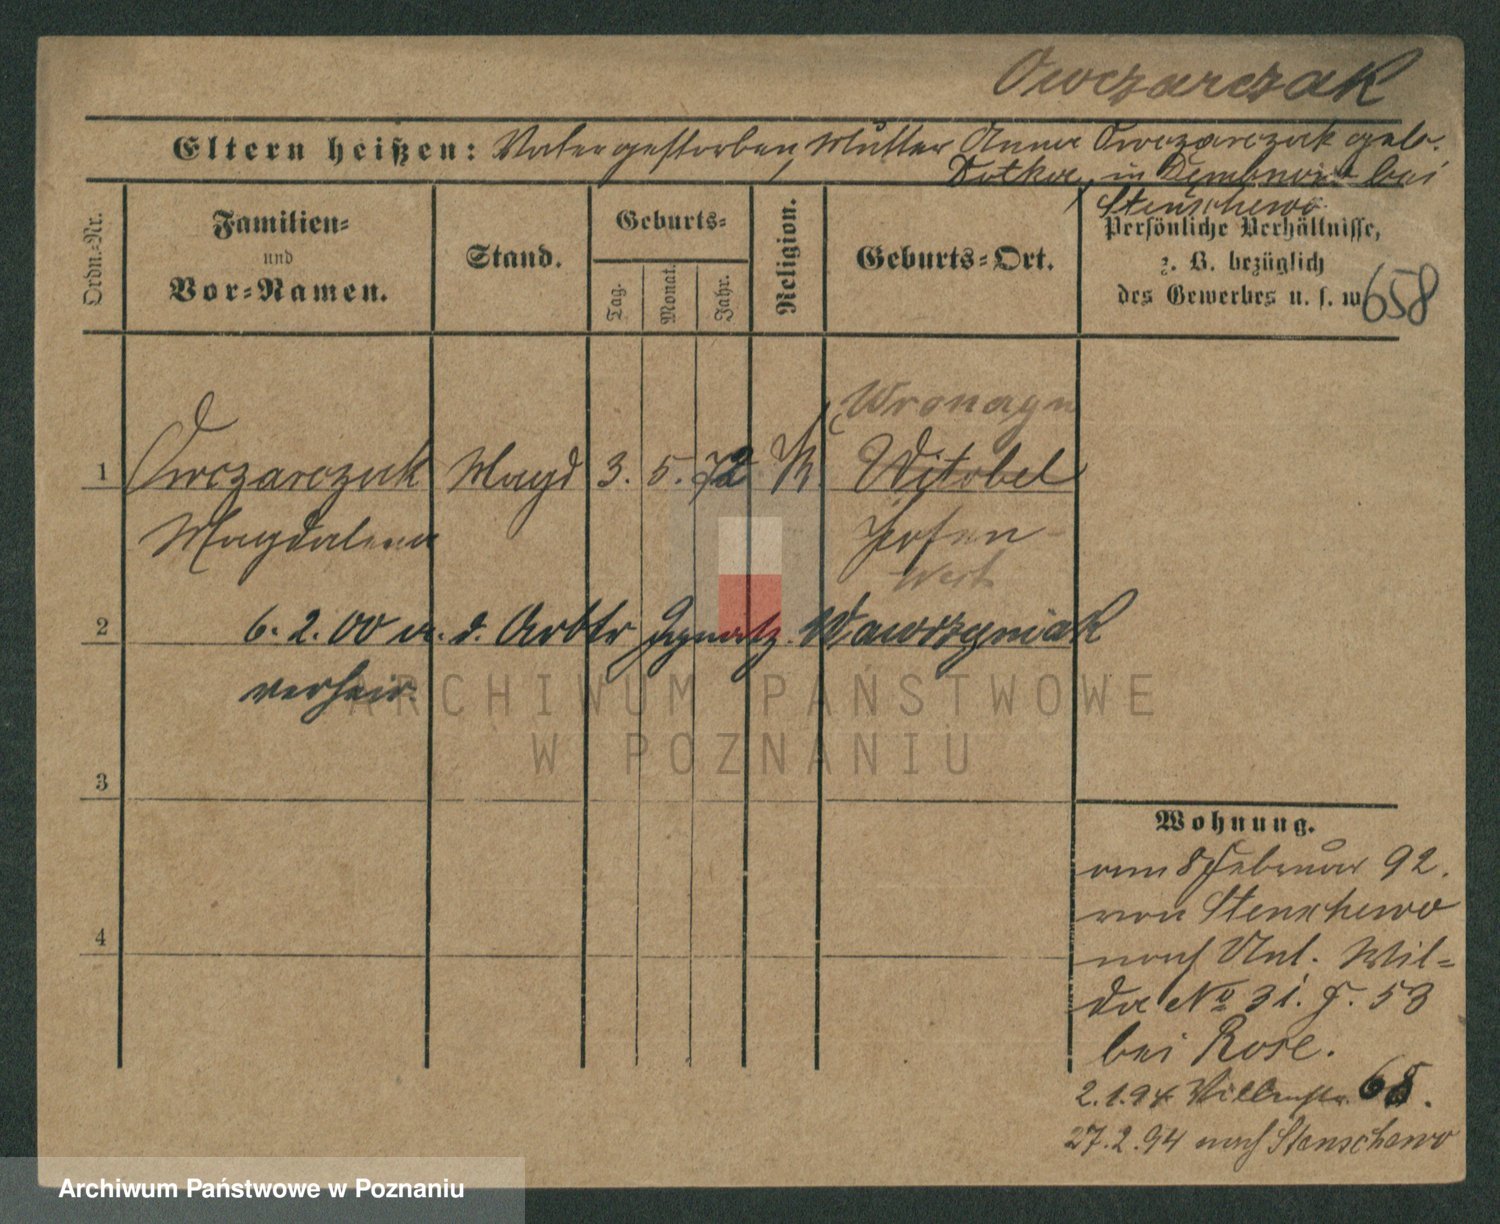 Owczarczak
Eltern heißen: Vater gestorben, Mutter Anna Owczarczak geb.
in bei
Stenschewo
Ordn.-Nr.
Familien-
und
Vor-Namen.
Stand.
Geburts-
Tag.
Monat.
Jahr.
Religion.
Geburts-Ort.
Persönliche Verhältnisse,
z. B. bezüglich
des Gewerbes u. s. w.
658
1 Owczarczak Magd 3. 5. 72 K. Witobel
Magdalena Posen
West
2 6. 2. 00 m. d. Arbtr Ignatz Wawrzyniak
verheir.
3
4
Wohnung.
am 8 Februar 92.
von Stenschewo
nach Unt. Wil-
da No 31. F. 53
bei Rose.
2.1.94 68.
27.2.94 nach Stenschewo
ARCHIWUM PAŃSTWOWE
W POZNANIU
Archiwum Państwowe w Poznaniu